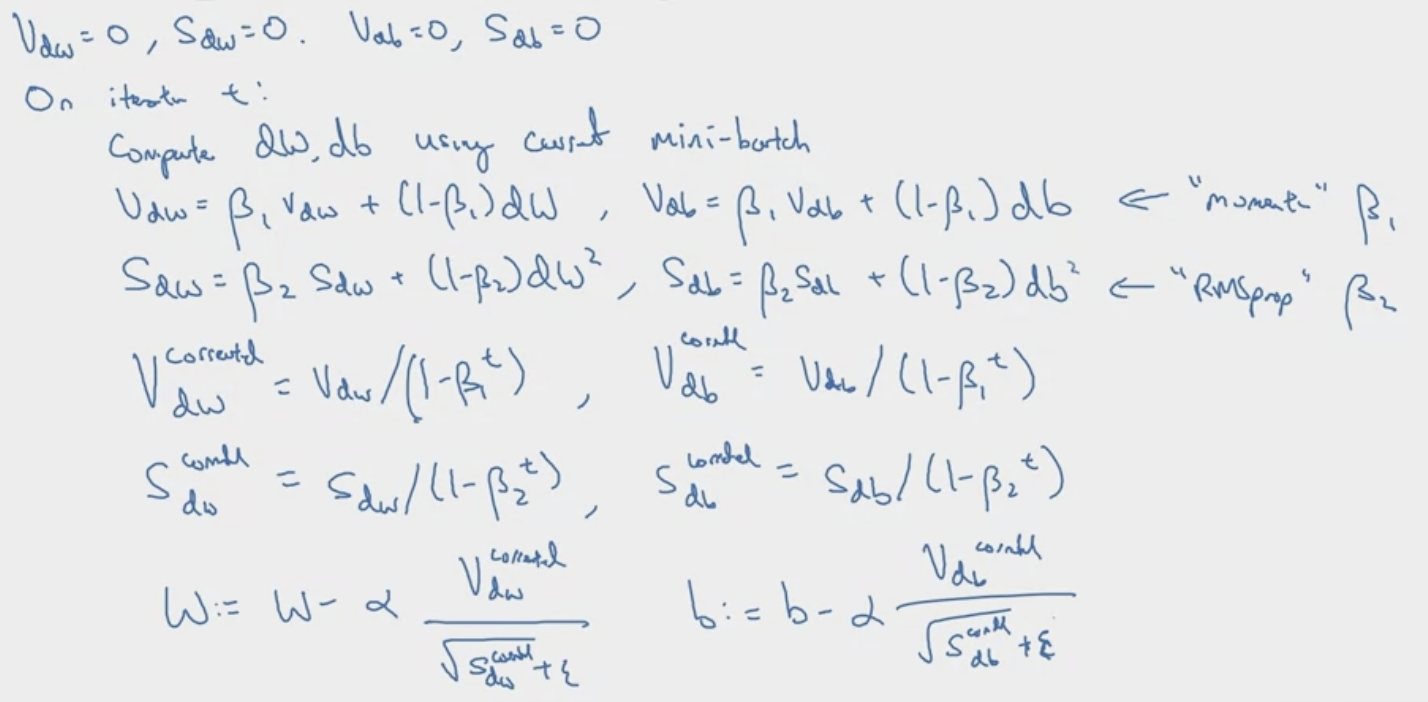 V_dw = 0, S_dw = 0. V_db = 0, S_db = 0
On iteratn t:
Compute dW, db using current mini-batch
V_dw = β₁ V_dw + (1-β₁) dW, V_db = β₁ V_db + (1-β₁) db ← "momentu" β₁
S_dw = β₂ S_dw + (1-β₂) dW², S_db = β₂ S_db + (1-β₂) db² ← "RMSprop" β₂
V_dw^corrected = V_dw/(1-β₁^t), V_db^corrected = V_db/(1-β₁^t)
S_dw^corrected = S_dw/(1-β₂^t), S_db^corrected = S_db/(1-β₂^t)
W := W - α V_dw^corrected / (√S_dw^corrected + ε) b := b - α V_db^corrected / (√S_db^corrected + ε)